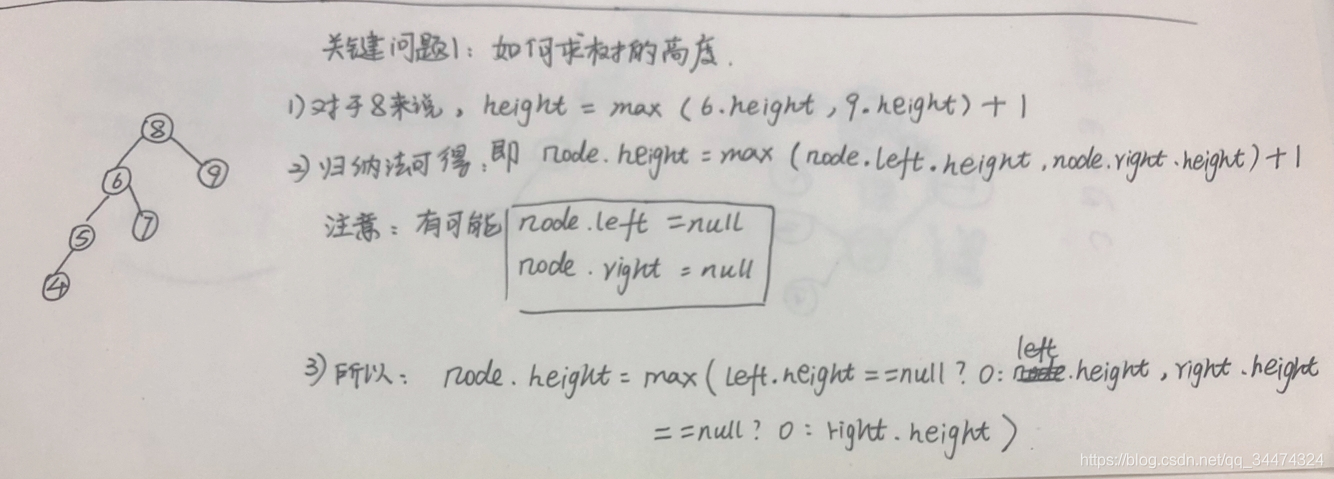 关键问题1: 如何求树的高度.
1) 对于8来说, height = max (6.height, 9.height) + 1
2) 归纳法可得, 即 node.height = max (node.left.height, node.right.height) + 1
注意: 有可能 node.left = null
node.right = null
3) 所以: node.height = max (left.height == null ? 0 : left.height, right.height
== null ? 0 : right.height)
8
6 9
5 7
4
https://blog.csdn.net/qq_34474324